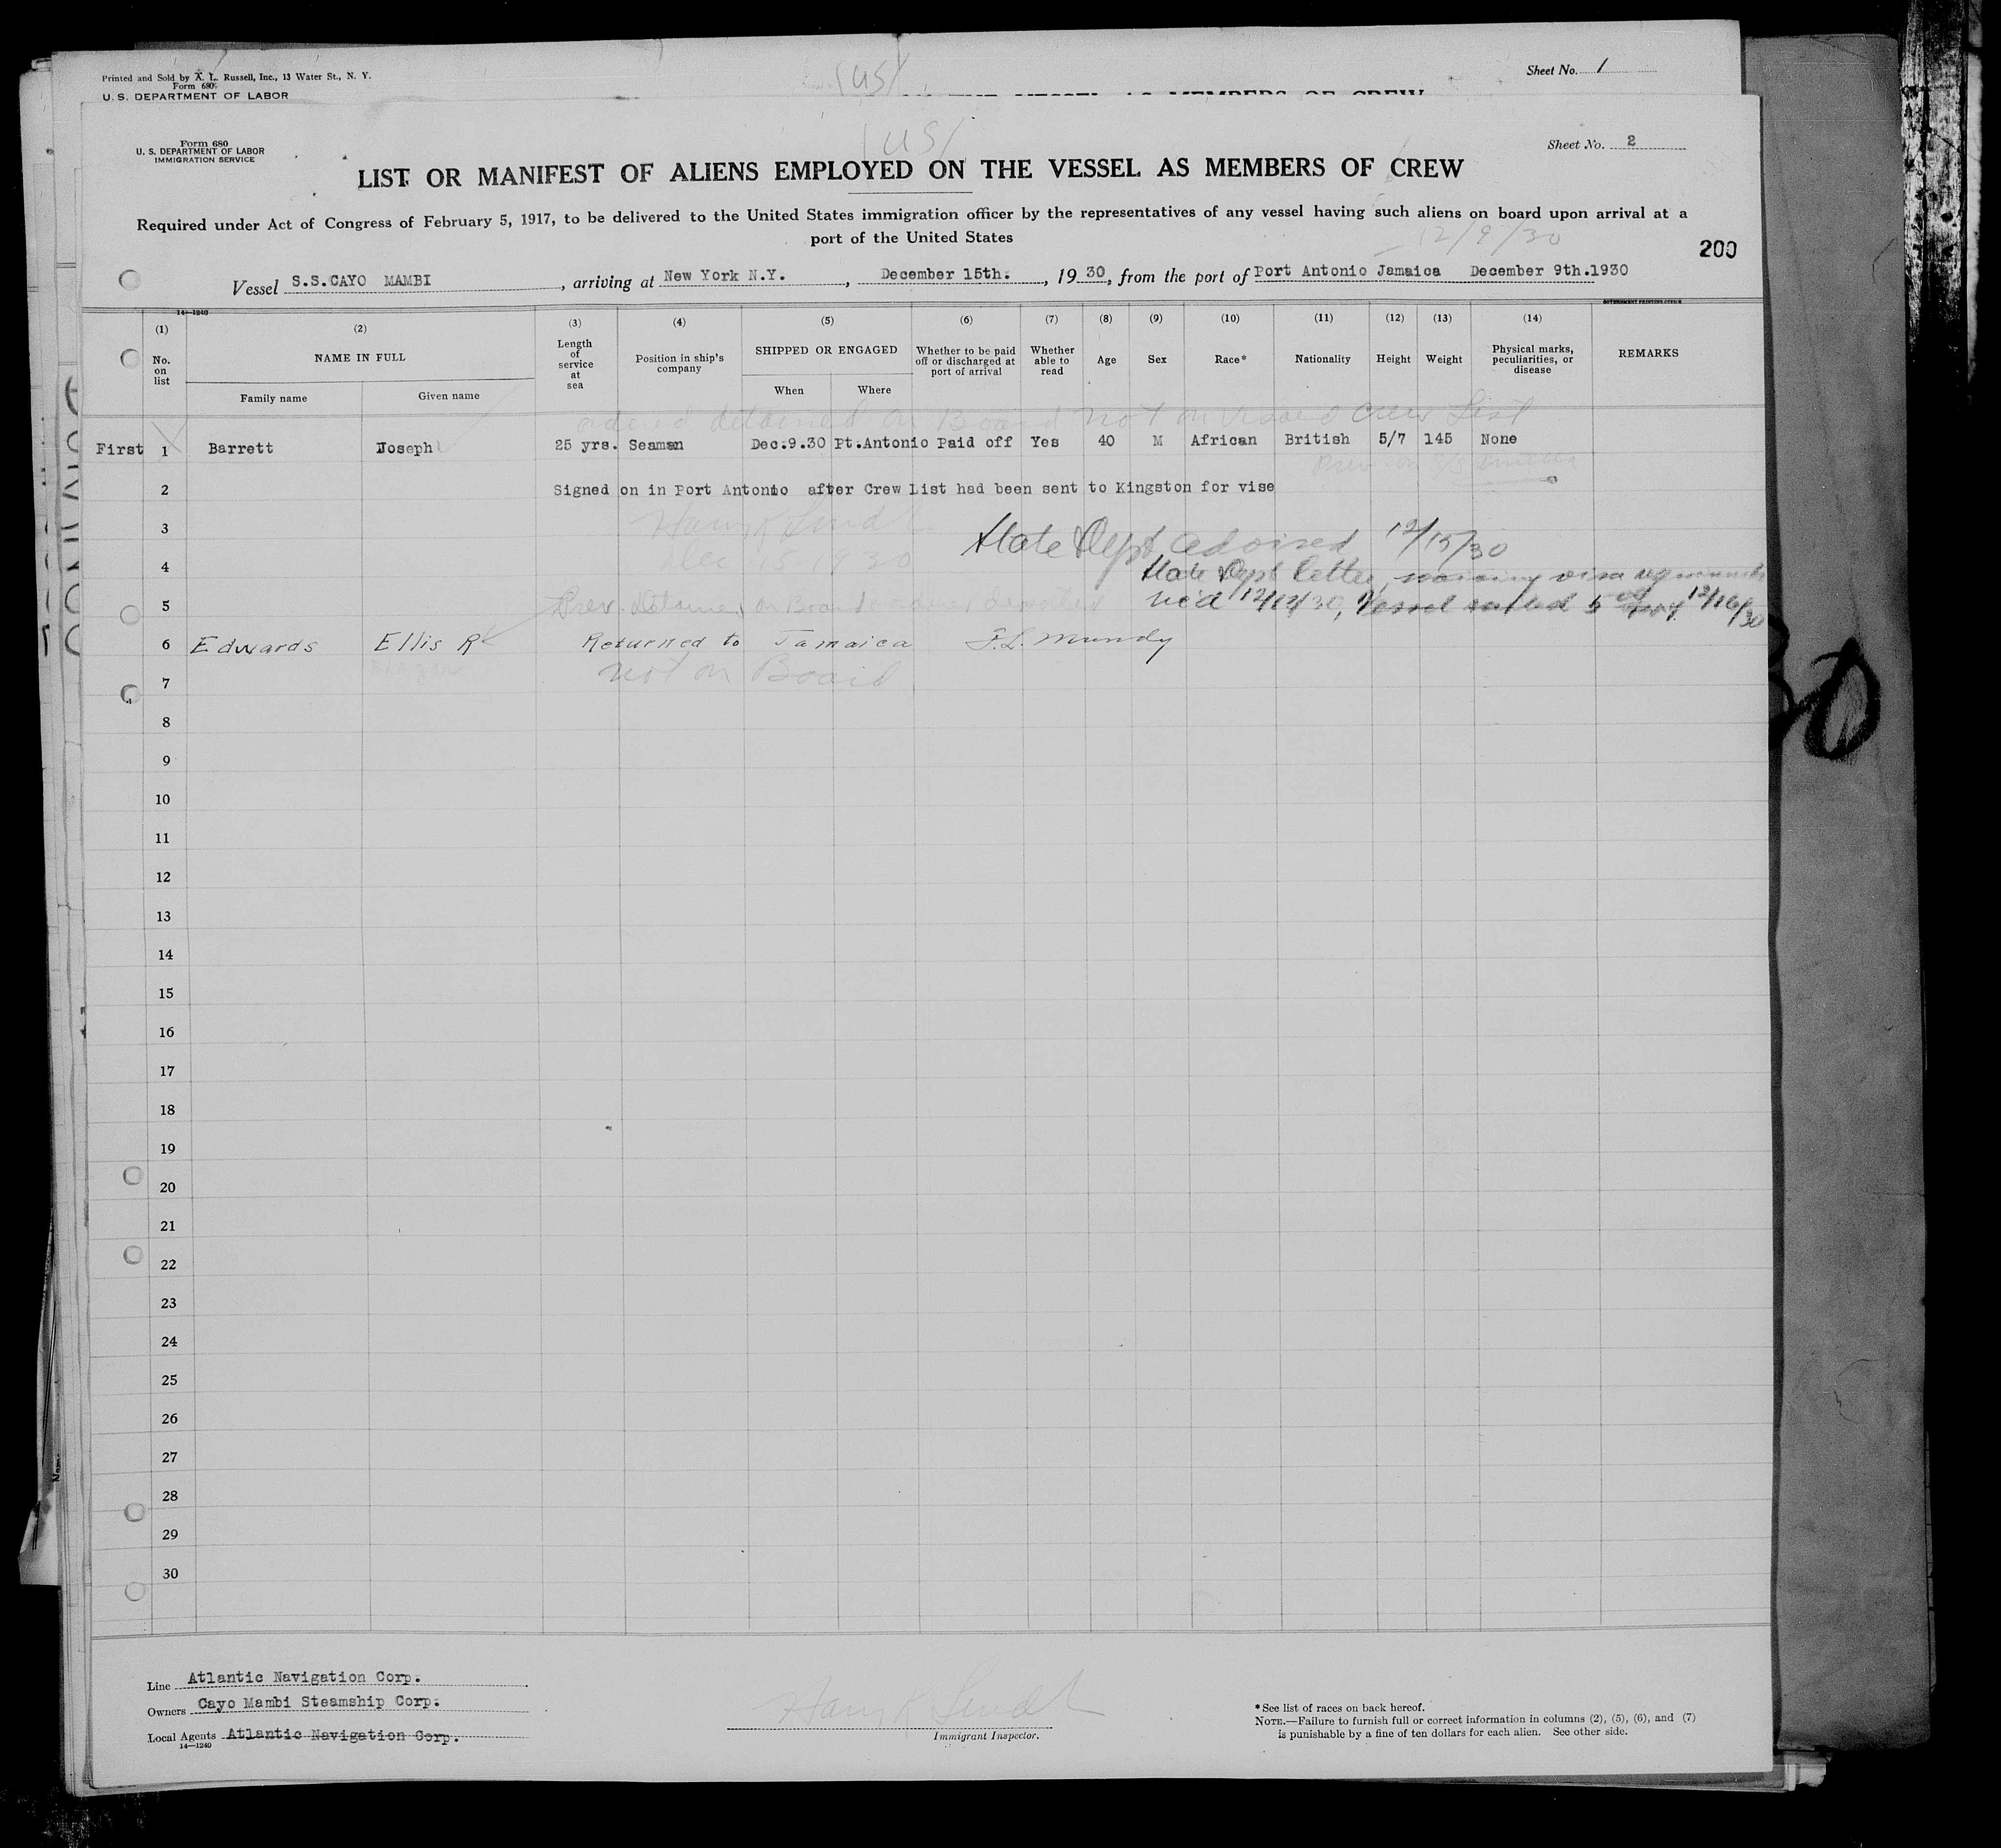 Printed and Sold by A. L. Russell, Inc., 13 Water St., N. Y.
Form 680
U. S. DEPARTMENT OF LABOR
Sheet No. 1
(US)
Form 680
U. S. DEPARTMENT OF LABOR
IMMIGRATION SERVICE
(US)
Sheet No. 2
LIST OR MANIFEST OF ALIENS EMPLOYED ON THE VESSEL AS MEMBERS OF CREW
Required under Act of Congress of February 5, 1917, to be delivered to the United States immigration officer by the representatives of any vessel having such aliens on board upon arrival at a
port of the United States
12/9/30
200
Vessel S.S.CAYO MAMBI, arriving at New York N.Y., December 15th., 1930, from the port of Port Antonio Jamaica December 9th.1930
14—1240
GOVERNMENT PRINTING OFFICE
(1) (2) (3) (4) (5) (6) (7) (8) (9) (10) (11) (12) (13) (14)
No. on list
NAME IN FULL
Family name
Given name
Length of service at sea
Position in ship's company
SHIPPED OR ENGAGED
When
Where
Whether to be paid off or discharged at port of arrival
Whether able to read
Age
Sex
Race*
Nationality
Height
Weight
Physical marks, peculiarities, or disease
REMARKS
ordered detained on Board not on visaed crew List
First 1 Barrett Joseph 25 yrs. Seaman Dec.9.30 Pt.Antonio Paid off Yes 40 M African British 5/7 145 None
2 Signed on in Port Antonio after Crew List had been sent to Kingston for vise
3 Harry K Lindt State Dept advised 12/15/30
4 Dec 15-1930 State Dept letter, visa
5 Prev. Detained on Board rec'd 12/12/30, Vessel sailed 5 12/16/30
6 Edwards Ellis R Returned to Jamaica F.L. Mundy
7 not on Board
8
9
10
11
12
13
14
15
16
17
18
19
20
21
22
23
24
25
26
27
28
29
30
Line Atlantic Navigation Corp.
Owners Cayo Mambi Steamship Corp.
Local Agents Atlantic Navigation Corp.
14—1240
Immigrant Inspector.
*See list of races on back hereof.
NOTE.—Failure to furnish full or correct information in columns (2), (5), (6), and (7)
is punishable by a fine of ten dollars for each alien. See other side.